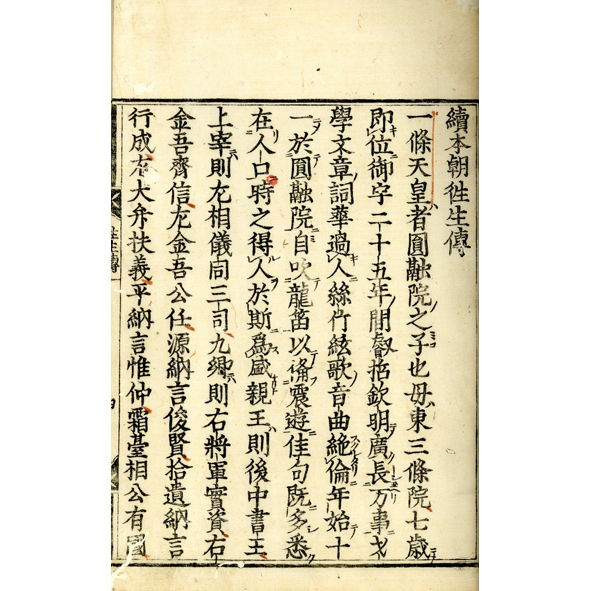 續本朝徃生傳
一條天皇者圓融院之子也母東三條院七歲
即位御宇二十五年間叡哲欽明廣長万事才
學文章詞華過人絲竹絃歌音曲絶倫年始十
一於圓融院自吹龍笛以備震遊佳句既多悉
在人口時之得人於斯爲盛親王則後中書王
上宰則左相儀同三司九卿則右將軍實資右
金吾齊信左金吾公任源納言俊賢拾遺納言
行成左大弁扶義平納言惟仲霜臺相公有國
徃生傳